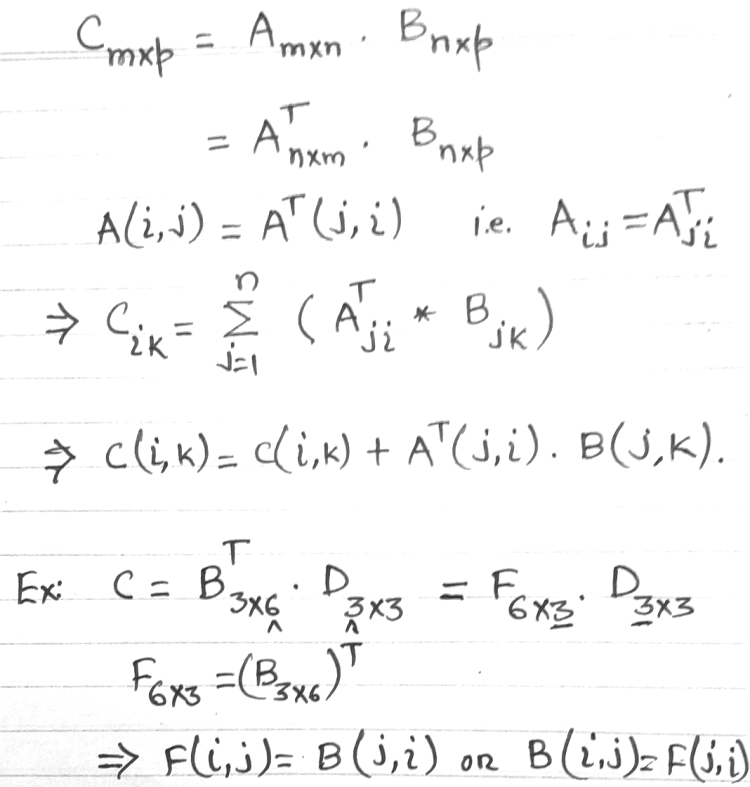 C_{m×p} = A_{m×n} . B_{n×p}
= A^T_{n×m} . B_{n×p}
A(i,j) = A^T(j,i) i.e. A_{ij} = A^T_{ji}
⇒ C_{ik} = Σ_{j=1}^{n} ( A^T_{ji} * B_{jk} )
⇒ C(i,k) = C(i,k) + A^T(j,i) . B(j,k).
Ex: C = B^T_{3×6} . D_{3×3} = F_{6×3} . D_{3×3}
F_{6×3} = (B_{3×6})^T
⇒ F(i,j) = B(j,i) or B(i,j) = F(j,i)